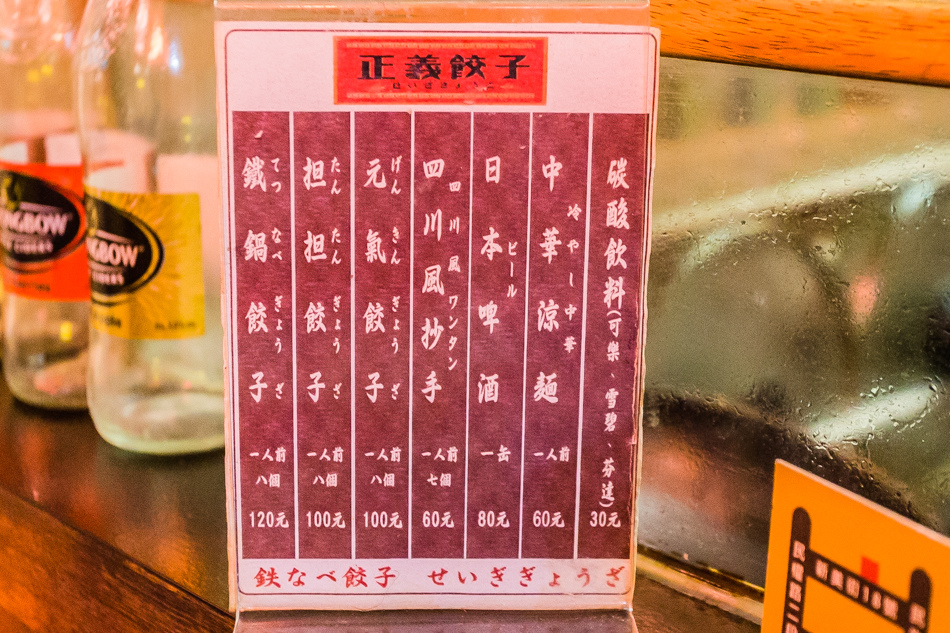 正義餃子
せいぎぎょうざ
鐵鍋餃子
てつなべぎょうざ
一人前
八個
120元
担担餃子
たんたんぎょうざ
一人前
八個
100元
元氣餃子
げんきんぎょうざ
一人前
八個
100元
四川風抄手
四川風ワンタン
一人前
七個
60元
日本啤酒
ビール
一缶
80元
中華涼麵
冷やし中華
一人前
60元
碳酸飲料(可樂、雪碧、芬達)
30元
鉄なべ餃子 せいぎぎょうざ
NGBOW
NGBOW